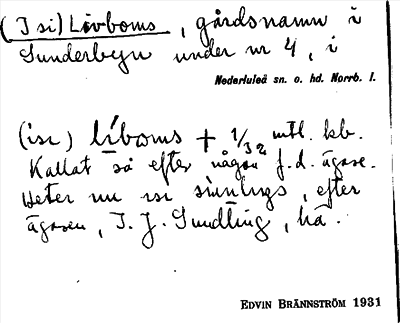 (I si) Livboms, gårdsnamn i
Sunderbyn under nr 4, i
Nederluleå sn. o. hd. Norrb. l.
(isi) líboms + 1/32 mtl. kb.
Kallat så efter någon f.d. ägare.
Heter nu isi sunlings, efter
ägaren, I. J. Sundling, hä.
EDVIN BRÄNNSTRÖM 1931